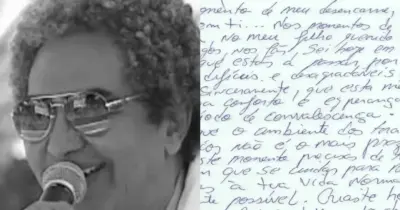 mento de meu desencarne,
em ti... Nos momentos de
, No meu filho querido
gos, nos fãs, Sei hoje em
que estás a passar por
difíceis, e desagradáveis
sinceramente, que esta mi
a conforto e esperança
íodo de convalescença.
ve o ambiente dos
não é o mais
este momento precisas de
que se
a tua Vida Normal
te possível. Quaste